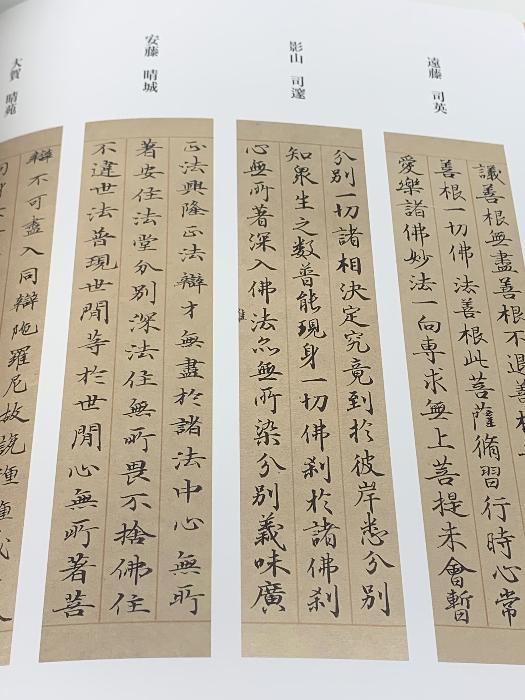 遠藤 司英
議善根無盡善根不退善根
善根一切佛法善根此菩薩脩習行時心常
愛樂諸佛妙法一向専求無上菩提未曾暫
影山 司邃
分別一切諸相決定究竟到於彼岸悉分別
知衆生之数普能現身一切佛刹於諸佛刹
心無所著深入佛法亦無所染分別義味廣
安藤 晴城
正法興隆正法辯才無盡於諸法中心無所
著安住法堂分別深法住無所畏不捨佛住
不違世法普現世間等於世間心無所著菩
大賀 晴苑
辯不可盡入同辯陁羅尼故説種種